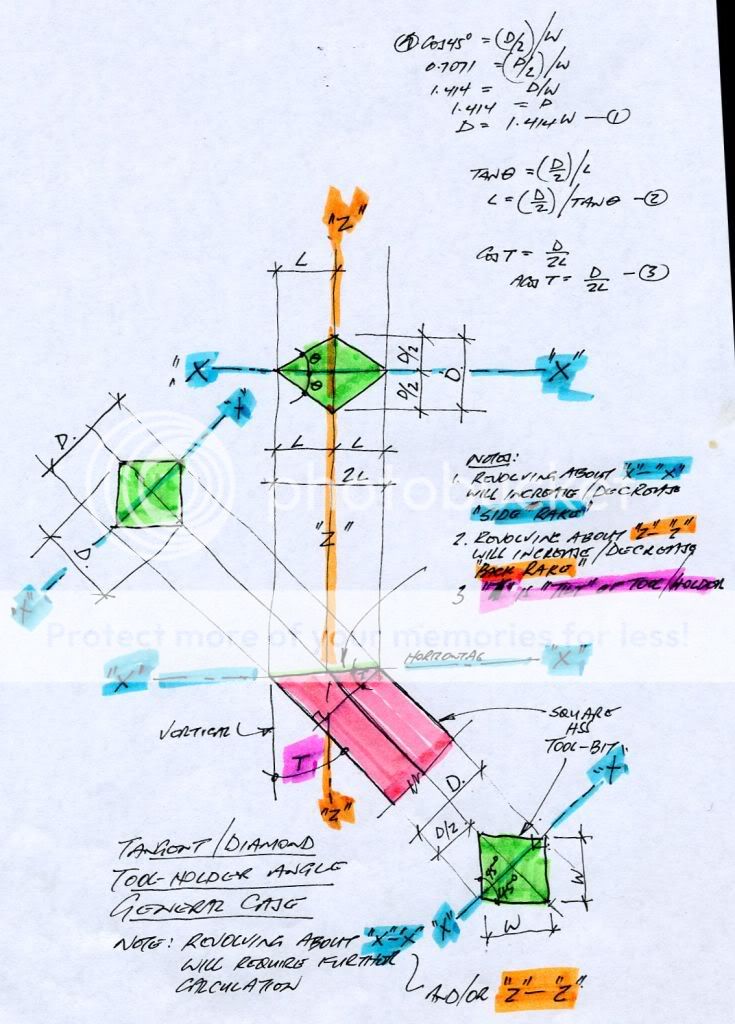 Ⓐ COS45° = (D/2)/W
0.7071 = (D/2)/W
1.414 = D/W
1.414 = D
D = 1.414W — ①
TANθ = (D/2)/L
L = (D/2)/TANθ — ②
COS T = D/2L
ACOS T = D/2L — ③
"Z"
L
"X"
θ
θ
D/2
D/2
D
"X"
"X"
D.
D.
"X"
L
L
2L
"Z"
photobucket
NOTES:
1. REVOLVING ABOUT "X"-"X"
WILL INCREASE/DECREASE
"SIDE RAKE"
2. REVOLVING ABOUT "Z-Z"
WILL INCREASE/DECREASE
"BACK RAKE"
3 "T" IS "TILT" OF TOOL/HOLDER
Protect more of your memories for less!
"X"
HORIZONTAL
"X"
T
VERTICAL
T
"Z"
W
SQUARE
HSS
TOOL-BIT
D.
D/2
"X"
45°
45°
W
W
"X"
TANGENT/DIAMOND
TOOL-HOLDER ANGLE
GENERAL CASE
NOTE: REVOLVING ABOUT "X-X"
WILL REQUIRE FURTHER
CALCULATION
AND/OR "Z-Z"